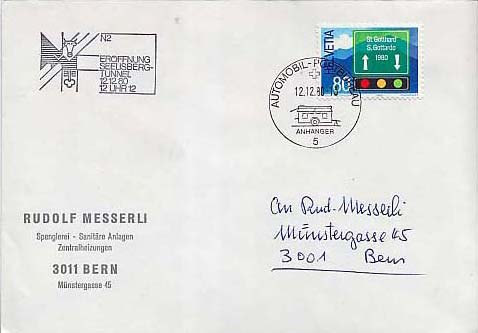 N2
ERÖFFNUNG
SEELISBERG-
TUNNEL
12.12.80
12 UHR 12
HELVETIA
80
St. Gotthard
S. Gottardo
1980
AUTOMOBIL-POSTBUREAU
12.12.80-12
ANHÄNGER
5
RUDOLF MESSERLI
Spenglerei - Sanitäre Anlagen
Zentralheizungen
3011 BERN
Münstergasse 45
An Rud. Messerli
Münstergasse 45
3001 Bern